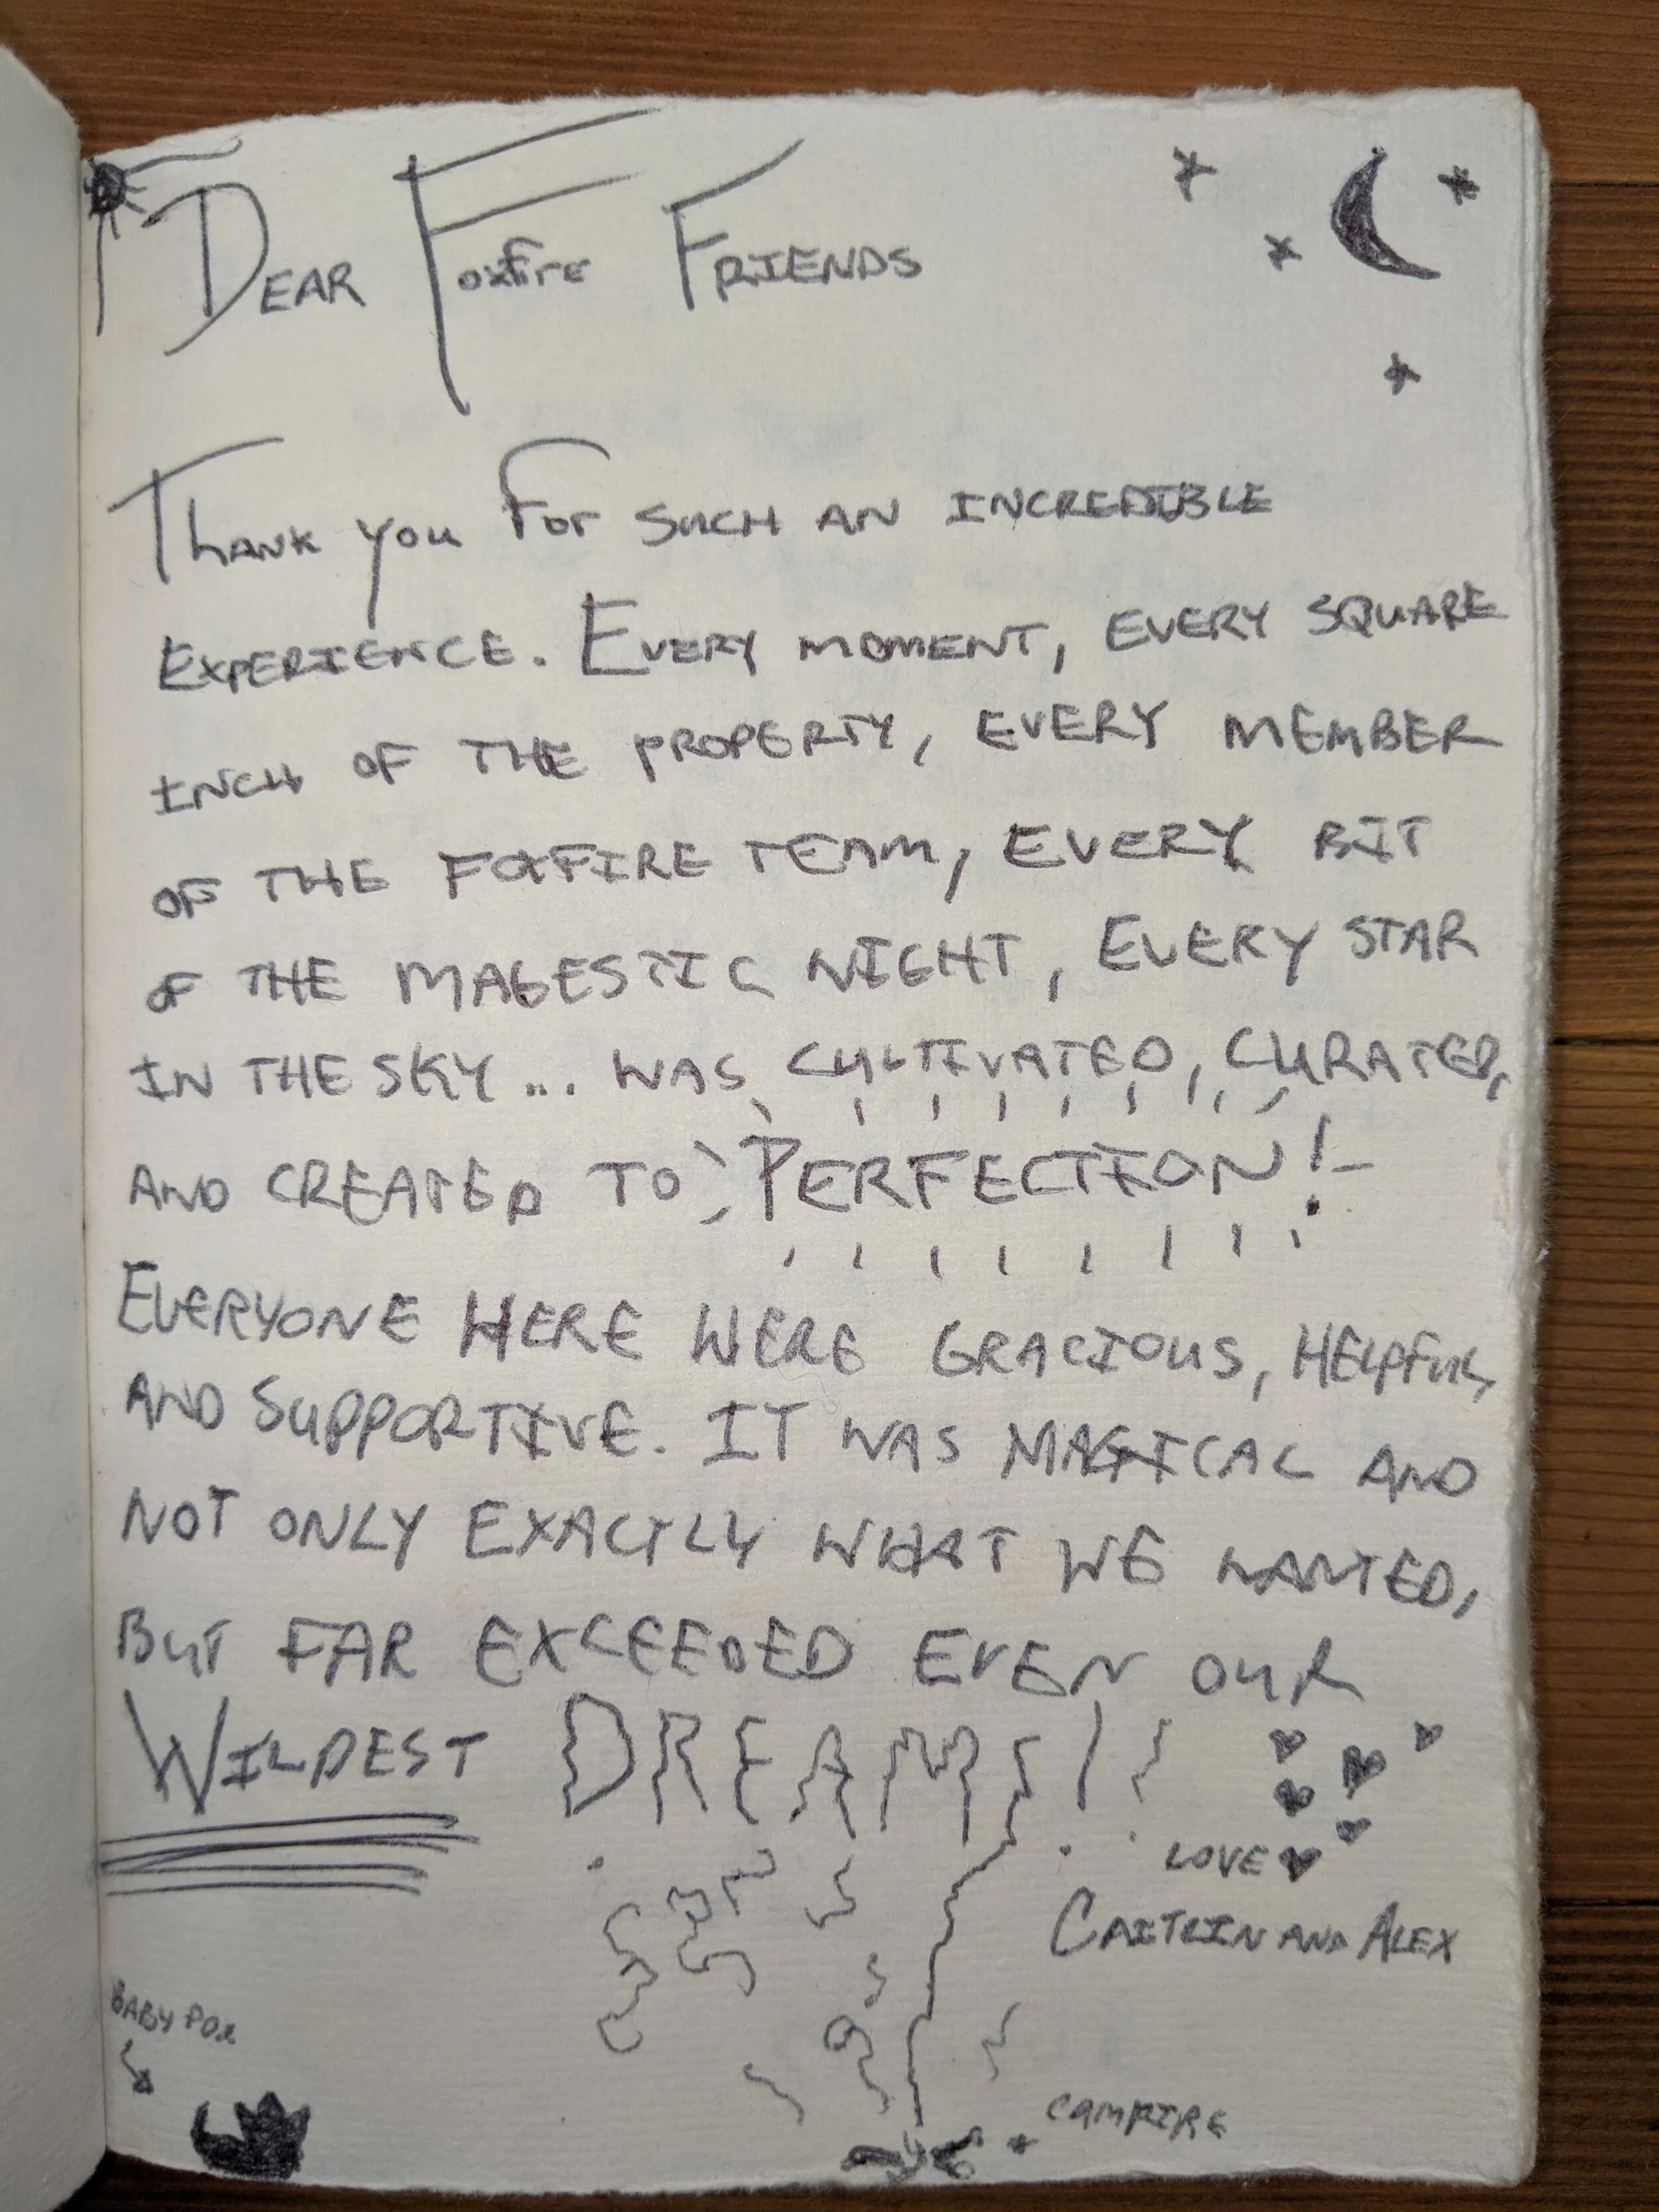 DEAR FOXFIRE FRIENDS
THANK YOU FOR SUCH AN INCREDIBLE
EXPERIENCE. EVERY MOMENT, EVERY SQUARE
INCH OF THE PROPERTY, EVERY MEMBER
OF THE FOXFIRE TEAM, EVERY BIT
OF THE MAGESTIC NIGHT, EVERY STAR
IN THE SKY... WAS CULTIVATED, CURATED,
AND CREATED TO PERFECTION!
EVERYONE HERE WERE GRACIOUS, HELPFUL,
AND SUPPORTIVE. IT WAS MAGICAL AND
NOT ONLY EXACTLY WHAT WE WANTED,
BUT FAR EXCEEDED EVEN OUR
WILDEST DREAMS!!
LOVE
CAITRIN AND ALEX
BABY FOX
CAMPFIRE